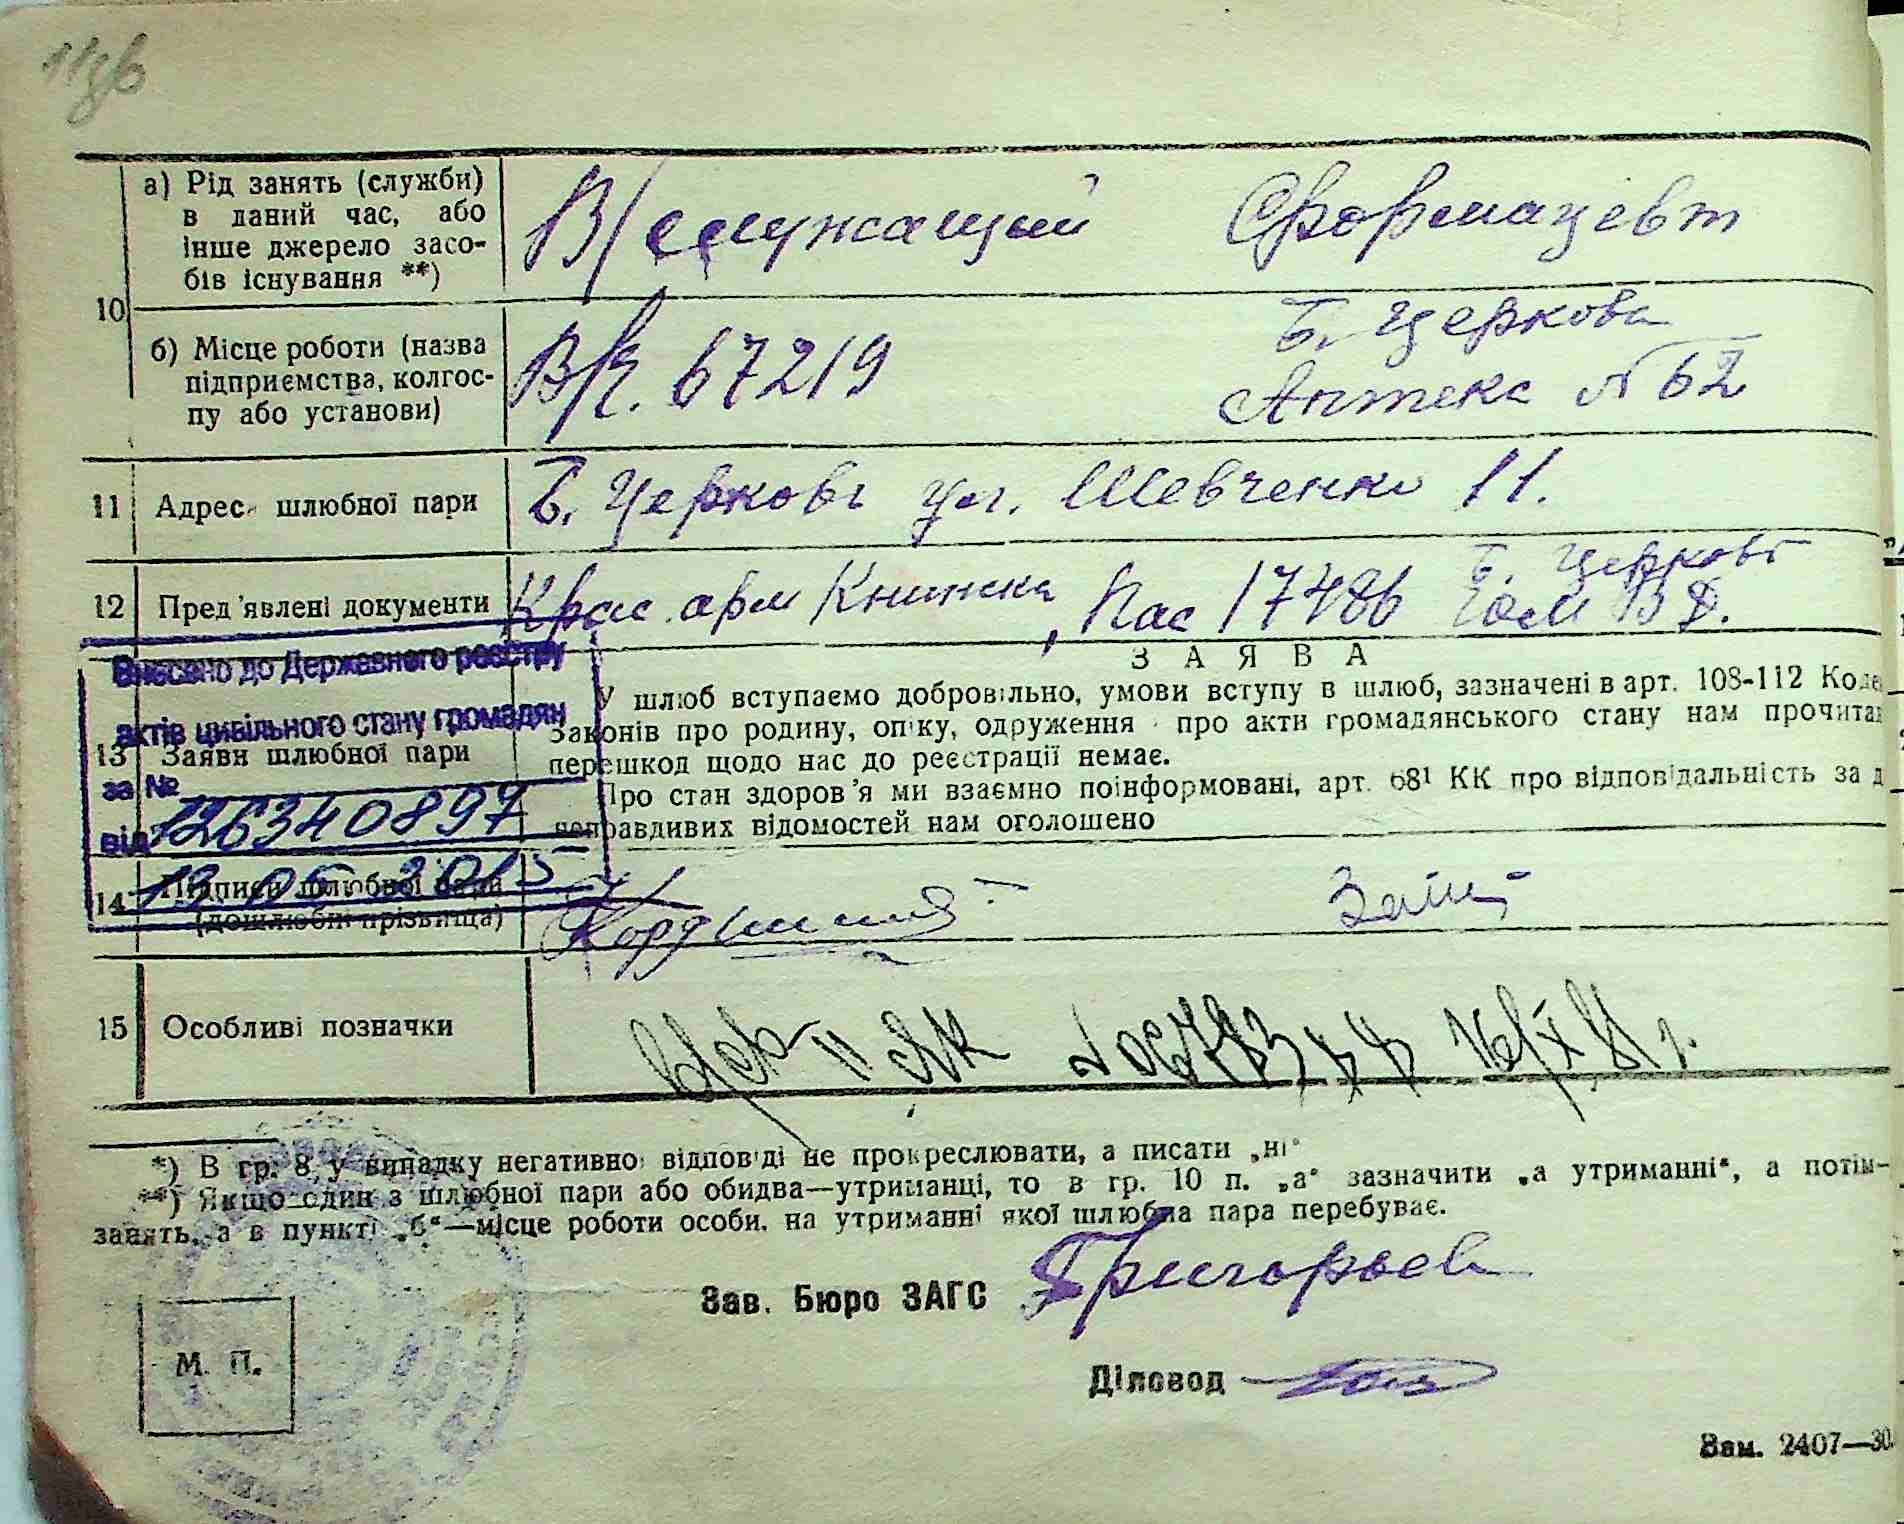 а) Рід занять (служби)
в даний час, або
інше джерело засо-
бів існування **)
В/служащий Фармацевт
10
б) Місце роботи (назва
підприємства, колгос-
пу або установи)
В/ч. 67219
Б. Церковь
Аптека № 62
11 Адрес шлюбної пари
Б. Церковь ул. Шевченко 11.
12 Пред'явлені документи
Крас арм Книжка, Пас 17486 Б. Церковь
З А Я В А
Внесено до Державного реєстру
актів цивільного стану громадян
за №
126340897
від 13.05.2015
13 Заяви шлюбної пари
У шлюб вступаємо добровільно, умови вступу в шлюб, зазначені в арт. 108-112 Коде
Законів про родину, опіку, одруження про акти громадянського стану нам прочита
перешкод щодо нас до реєстрації немає.
Про стан здоров'я ми взаємно поінформовані, арт. 68¹ КК про відповідальність за д
неправдивих відомостей нам оголошено
14 Підписи шлюбної пари
(дошлюбні прізвища)
15 Особливі позначки
*) В гр. 8 у випадку негативної відповіді не прокреслювати, а писати „ні"
**) Якщо один з шлюбної пари або обидва—утриманці, то в гр. 10 п. „а" зазначити „а утриманні", а потім—
занять, а в пункті „б"—місце роботи особи, на утриманні якої шлюбна пара перебуває.
Зав. Бюро ЗАГС Григорьев
М. П.
Діловод
Зам. 2407—30